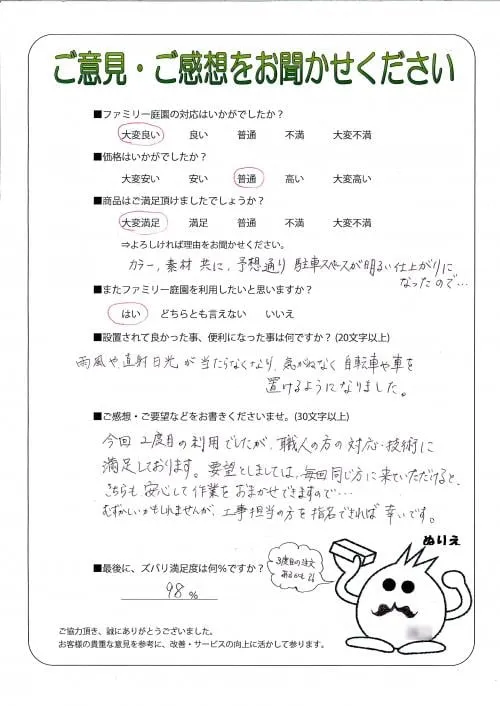 ご意見・ご感想をお聞かせください
■ファミリー庭園の対応はいかがでしたか？
大変良い 良い 普通 不満 大変不満
■価格はいかがでしたか？
大変安い 安い 普通 高い 大変高い
■商品はご満足頂けましたでしょうか？
大変満足 満足 普通 不満 大変不満
⇒よろしければ理由をお聞かせください。
カラー，素材 共に，予想通り 駐車スペースが明るい仕上がりに
なったので…
■またファミリー庭園を利用したいと思いますか？
はい どちらとも言えない いいえ
■設置されて良かった事、便利になった事は何ですか？(20文字以上)
雨風や直射日光が当たらなくなり、気がねなく自転車や車を
置けるようになりました。
■ご感想・ご要望などをお書きくださいませ。(30文字以上)
今回2度目の利用でしたが、職人の方の対応・技術に
満足しております。要望としましては、毎回同じ方に来ていただけると、
こちらも安心して作業をおまかせできますので…
むずかしいかもしれませんが、工事担当の方を指名できれば幸いです。
ぬりえ
3度目の注文
あるかも
■最後に、ズバリ満足度は何％ですか？
98 %
ご協力頂き、誠にありがとうございました。
お客様の貴重な意見を参考に、改善・サービスの向上に活かして参ります。